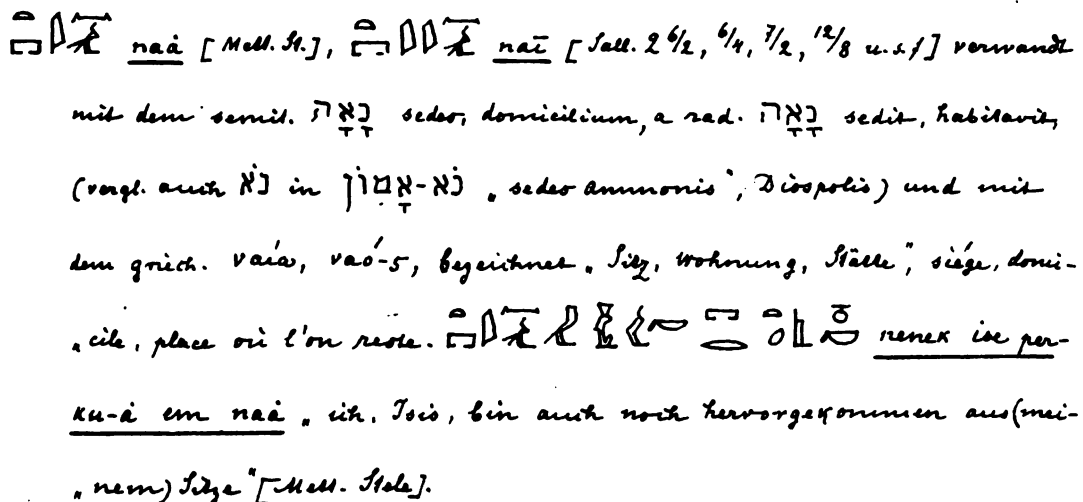 naȧ [Mett. St.], naī [Sall. 2 6/2, 6/4, 7/2, 12/8 u.s.f] verwandt
mit dem semit. נָאָה sedes, domicilium, a rad. נָאָה sedit, habitavit,
(vergl. auch נֹא in נֹא-אָמוֹן „sedes Ammonis“, Diospolis) und mit
dem griech. ναίω, ναό-ς, bezeichnet „Sitz, Wohnung, Stätte“, siége, domi-
„cile, place où l'on reste. nenek ise per-
ku-ȧ em naȧ „ich, Isis, bin auch noch hervorgekommen aus (mei-
„nem) Sitze“ [Mett. Stele].